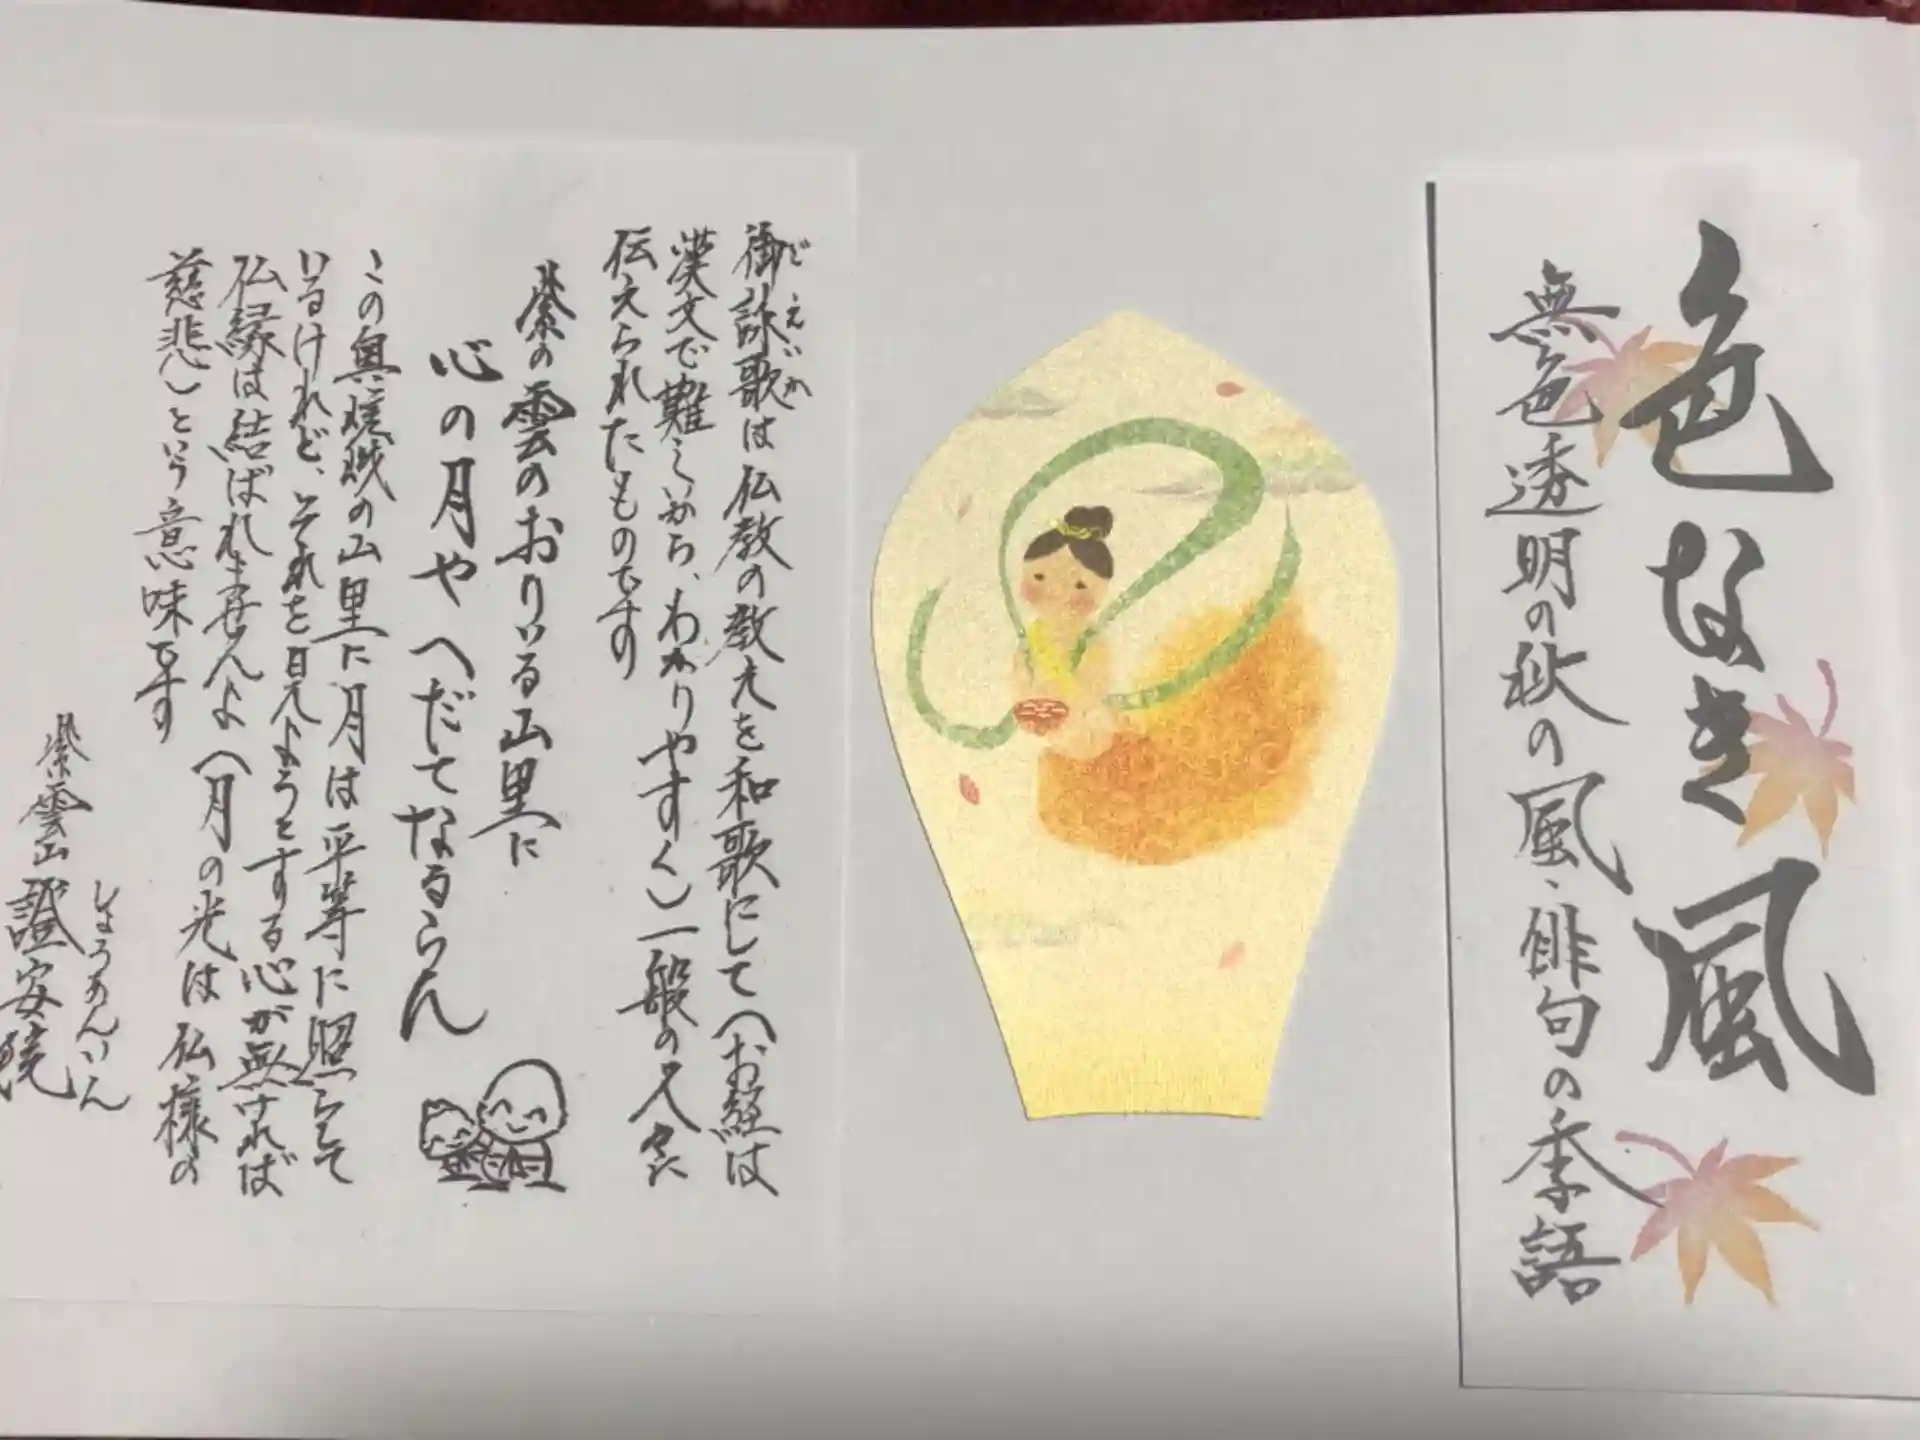 色なき風
無色透明の秋の風、俳句の季語
御詠歌は仏教の教えを和歌にして(お経は
ごえいか
漢文で難しいから、わかりやすく)一般の人々に
伝えられたものです
紫の雲のおりいる山里に
心の月やへだてなるらん
この奥嵯峨の山里に月は平等に照らして
いるけれど、それを見ようとする心が無ければ
仏縁は結ばれませんよ(月の光は仏様の
慈悲)という意味です
紫雲山證安院
しょうあんいん